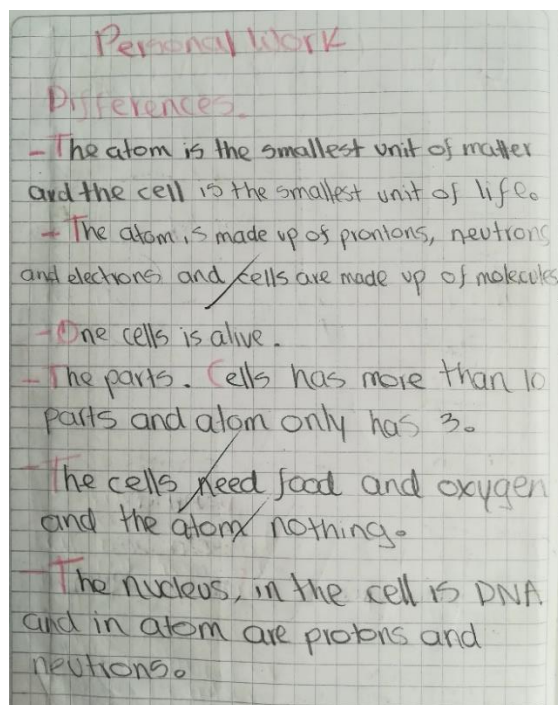 Personal Work
Differences.
- The atom is the smallest unit of matter
and the cell is the smallest unit of life.
- The atom is made up of prontons, neutrons
and electrons and cells are made up of molecules
- One cells is alive.
- The parts. Cells has more than 10
parts and atom only has 3.
- The cells need food and oxygen
and the atom nothing.
- The nucleus, in the cell is DNA
and in atom are protons and
neutrons.